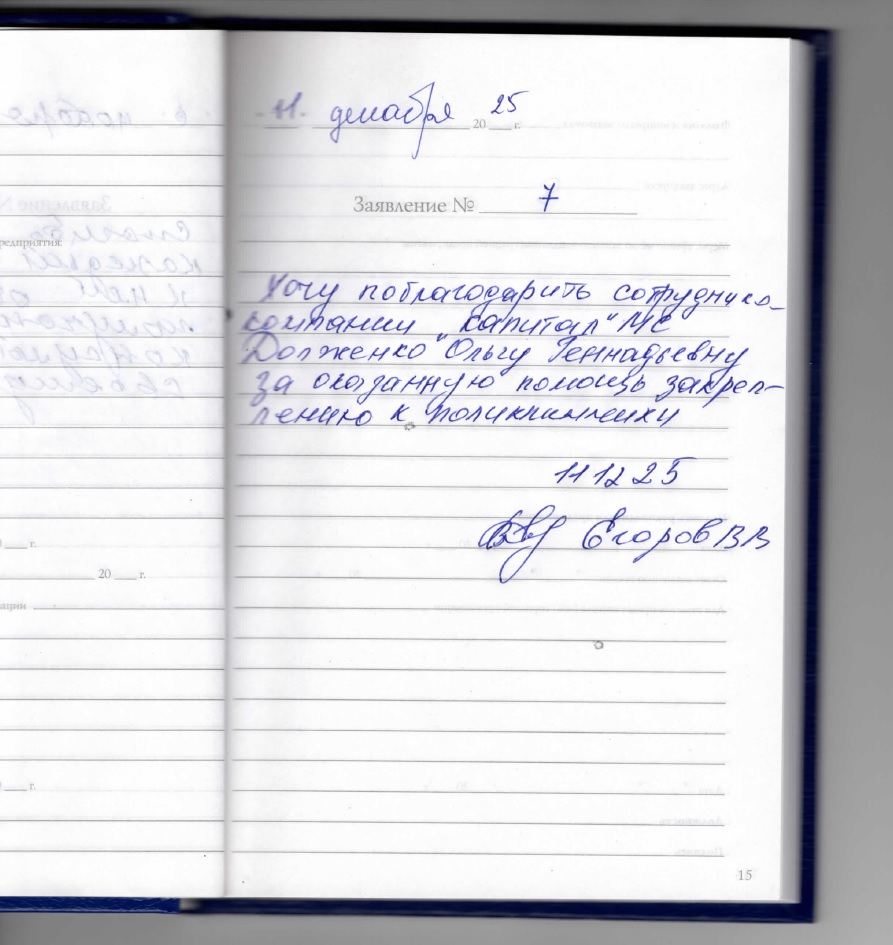 11. декабря 2025 г.
Заявление № 7
Хочу поблагодарить сотрудника
компании "Капитал" МС
Долженко Ольгу Геннадьевну
за оказанную помощь закреп-
лению к поликлинники
11 12 25
Егоров ВВ
редприятия:
г.
20 г.
ации
г.
15